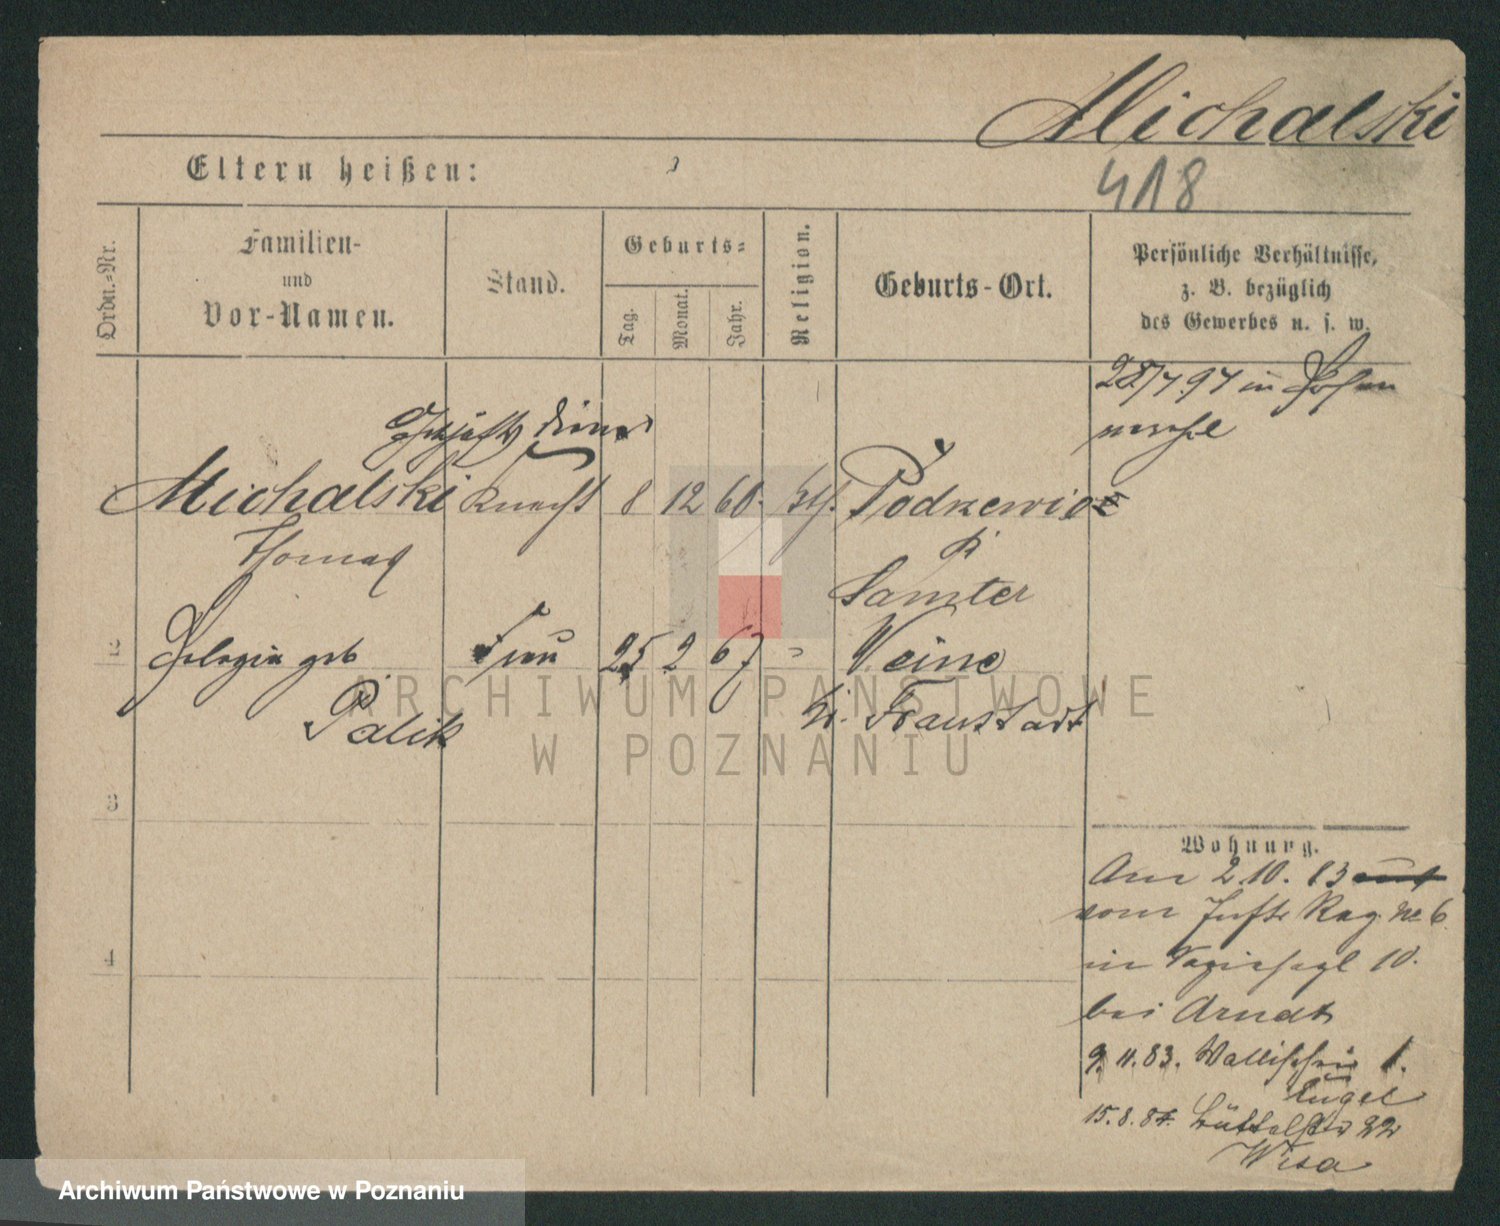 Michalski
418
Eltern heißen:
Ordn.-Nr.
Familien-
und
Vor-Namen.
Stand.
Geburts-
Tag.
Monat.
Jahr.
Religion.
Geburts-Ort.
Persönliche Verhältnisse,
z. B. bezüglich
des Gewerbes u. s. w.
28/7 97 in Posen
Geschäfts diener
Michalski Knecht 8 12 60. kth. Podrzewie
Thomas
Kr
Samter
2 Pelagia geb Frau 25 2 67 Weine
Palik Kr. Fraustadt
3
4
Wohnung.
Am 2.10. 83
vom No 6
in 10.
bei Arndt
9.11.83. Wallischei 1.
Engel
15.8.84. Büttelstr 22
Wisa
ARCHIWUM PAŃSTWOWE
W POZNANIU
Archiwum Państwowe w Poznaniu